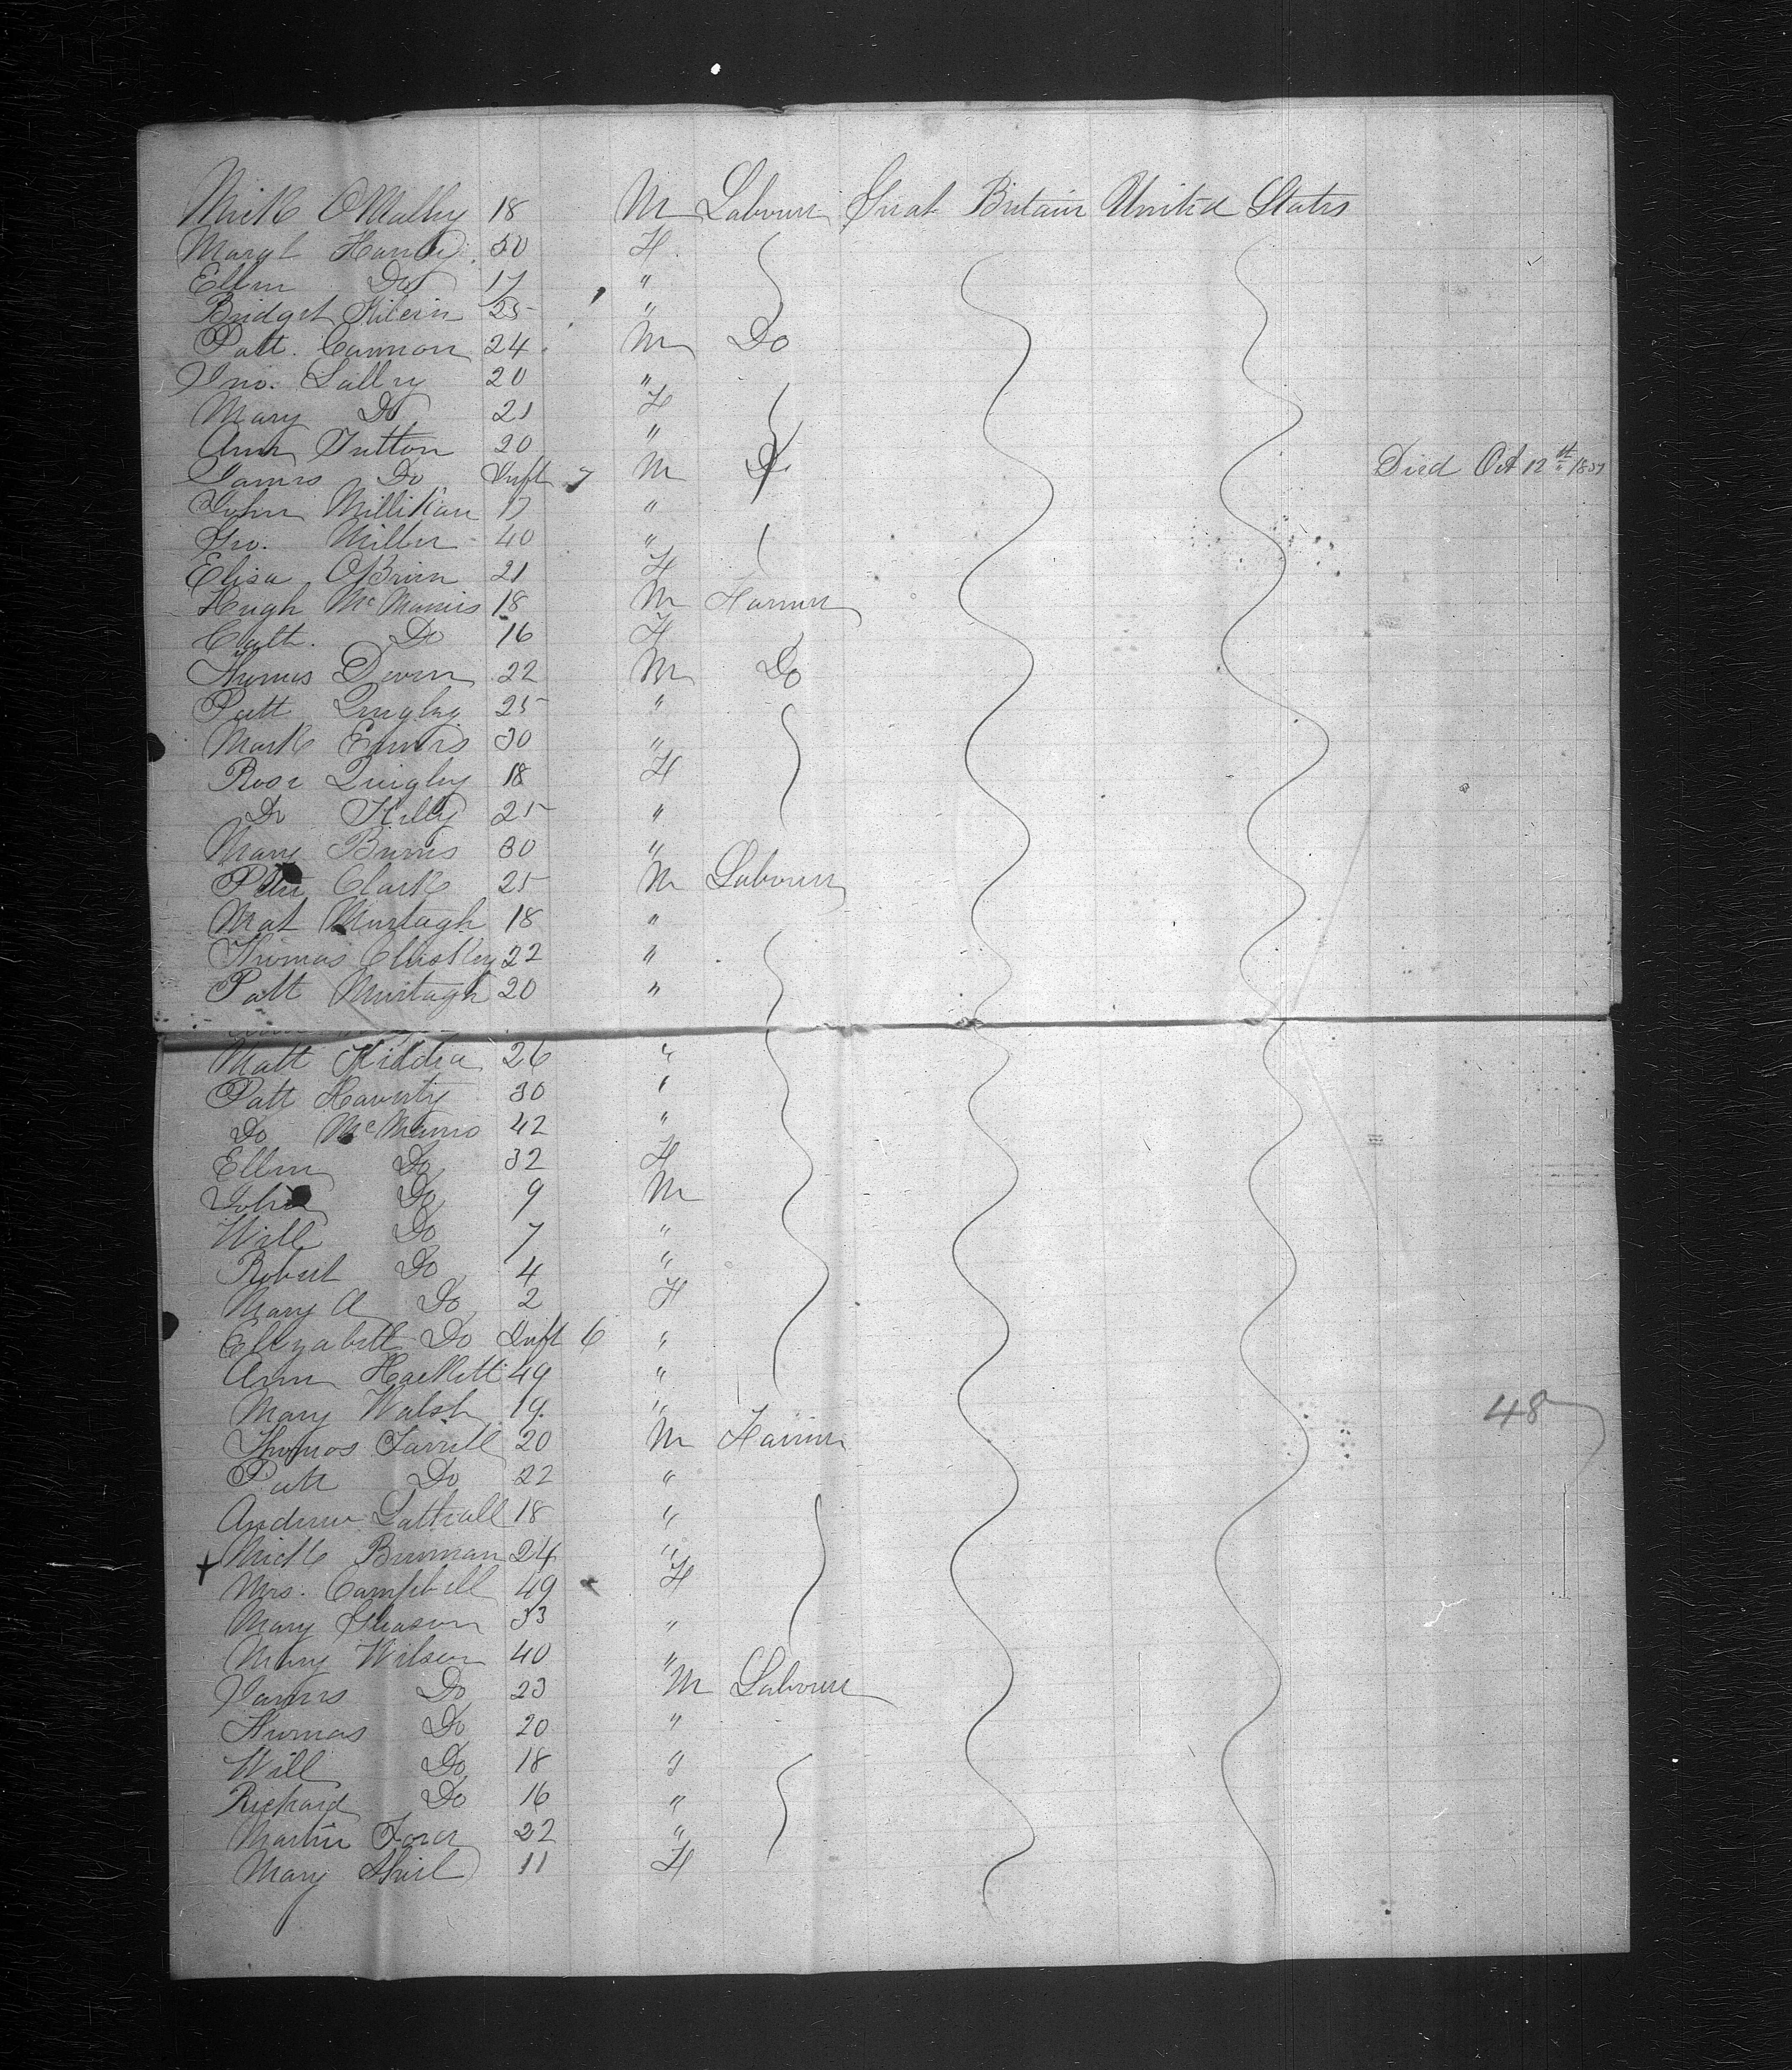 Mick O'Malley 18 M Labourer Great Britain United States
Margt Hanley 50 F
Ellen Do 17 "
Bridget Kilein 25 "
Patt. Cannon 24 M Do
Jno. Lally 20 "
Mary Do 21 F
Ann Sutton 20 "
James Do Inft 7 M Do Died Oct 12th 18
John Millikan 17 "
Geo. Miller 40 "
Elisa O'Brien 21 F
Hugh McManus 18 M Farmer
Cath. Do 16 F
Thomas Deven 22 M Do
Patt Quigley 25 "
Mark Ennis 30 "
Rose Quigley 18 F
Do Kelly 25 "
Mary Burns 30 "
Peter Clark 25 M Labourer
Mat Murtagh 18 "
Thomas Cluskey 22 "
Patt Murtagh 20 "
Matt 26 "
Patt Haverty 30 "
Do McManus 42 "
Ellen Do 32 F
John Do 9 M
Will Do 7 "
Robert Do 4 "
Mary A Do 2 F
Elizabeth Do Inft 6 "
Ann Hackett 49 "
Mary Walsh 19 " 48
Thomas Farrell 20 M Farmer
Patt Do 22 "
Andrew 18 "
+ Mick Brennan 24 "
Mrs. Campbell 49 F
Mary Gleason 33 "
Mary Wilson 40 "
James Do 23 M Labourer
Thomas Do 20 "
Will Do 18 "
Richard Do 16 "
Martin Ford 22 "
Mary 11 F